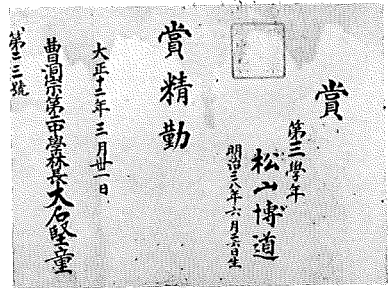 賞
第三學年
松山博道
明治三八年六月二六日生
賞精勤
大正十二年三月卅一日
曹洞宗第二中學林長大石堅童
第二三號